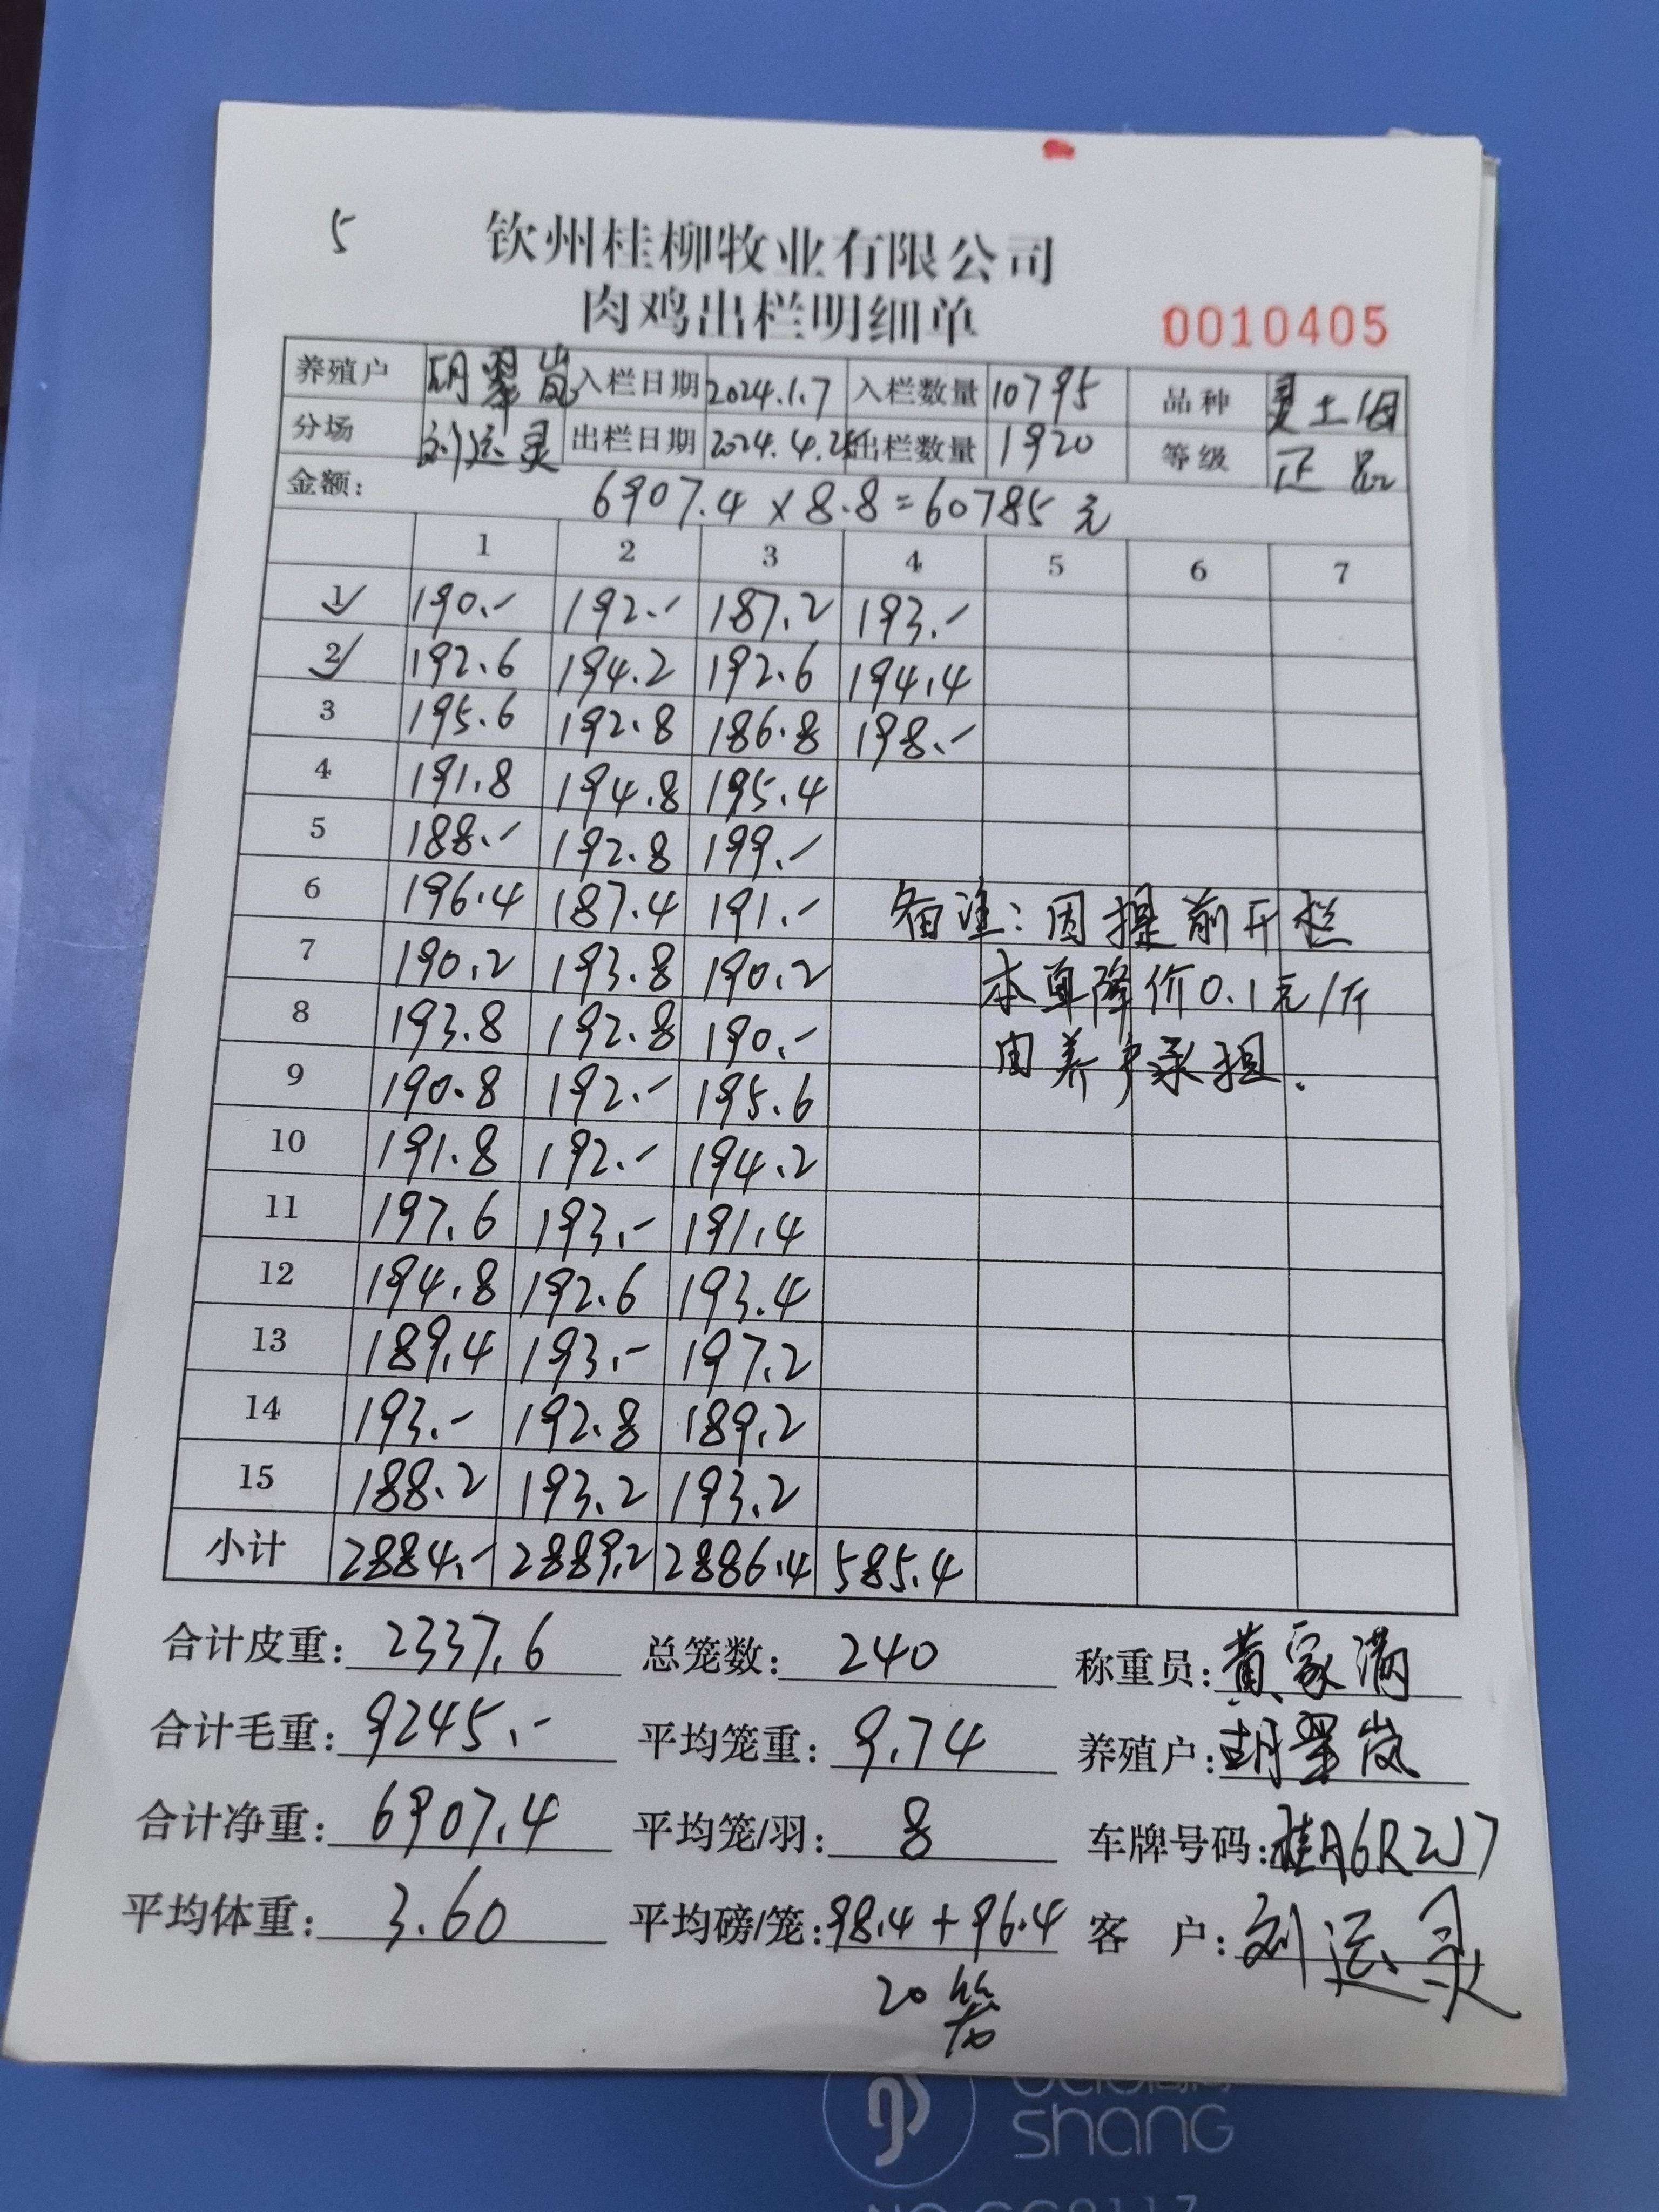 5
钦州桂柳牧业有限公司
肉鸡出栏明细单
0010405
养殖户 胡翠岚 入栏日期 2024.1.7 入栏数量 10795 品种 灵土
分场 刘运灵 出栏日期 2024.4.2 出栏数量 1920 等级 正品
金额: 6907.4 × 8.8 = 60785 元
1 2 3 4 5 6 7
1 190.- 192.- 187.2 193.-
2 192.6 194.2 192.6 194.4
3 195.6 192.8 186.8 198.-
4 191.8 194.8 195.4
5 188.- 192.8 199.-
6 196.4 187.4 191.- 备注: 因提前开栏
7 190.2 193.8 190.2 本車降价0.1元/斤
8 193.8 192.8 190.- 由养户承担.
9 190.8 192.- 195.6
10 191.8 192.- 194.2
11 197.6 193.- 191.4
12 194.8 192.6 193.4
13 189.4 193.- 197.2
14 193.- 192.8 189.2
15 188.2 193.2 193.2
小计 2884.- 2889.2 2886.4 585.4
合计皮重: 2337.6 总笼数: 240 称重员: 黄家满
合计毛重: 9245.- 平均笼重: 9.74 养殖户: 胡翠岚
合计净重: 6907.4 平均笼/羽: 8 车牌号码: 桂A6R2J7
平均体重: 3.60 平均磅/笼: 98.4 + 96.4 客 户: 刘运灵
20
shang